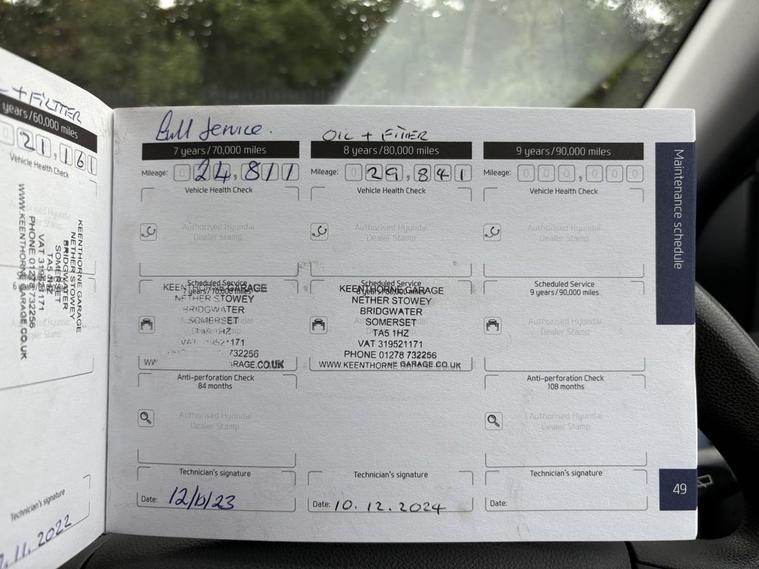 + FILTTER
years/60,000 miles
21,161
Vehicle Health Check
KEENTHORNE GARAGE
NETHER STOWEY
BRIDGWATER
SOMERSET
TA5 1HZ
VAT 319521171
PHONE 01278 732256
WWW.KEENTHORNE GARAGE.CO.UK
Technician's signature
.11.2022
Full Service.
7 years/70,000 miles
Mileage: 24,811
Vehicle Health Check
Authorised Hyundai
Dealer Stamp
Scheduled Service
7 years/70,000 miles
KEENTHORNE GARAGE
NETHER STOWEY
BRIDGWATER
SOMERSET
TA5 1HZ
VAT 319521171
732256
WW ARAGE.CO.UK
Anti-perforation Check
84 months
Authorised Hyundai
Dealer Stamp
Technician's signature
Date:
OIL + FITTER
8 years/80,000 miles
Mileage: 029,841
Vehicle Health Check
Authorised Hyundai
Dealer Stamp
Scheduled Service
8 years/80,000 miles
KEENTHORNE GARAGE
NETHER STOWEY
BRIDGWATER
SOMERSET
TA5 1HZ
VAT 319521171
PHONE 01278 732256
WWW.KEENTHORNE GARAGE.CO.UK
Technician's signature
Date: 10.12.2024
9 years/90,000 miles
Mileage: 000,000
Vehicle Health Check
Authorised Hyundai
Dealer Stamp
Scheduled Service
9 years/90,000 miles
Authorised Hyundai
Dealer Stamp
Anti-perforation Check
108 months
Authorised Hyundai
Dealer Stamp
Technician's signature
Date:
Maintenance schedule
49